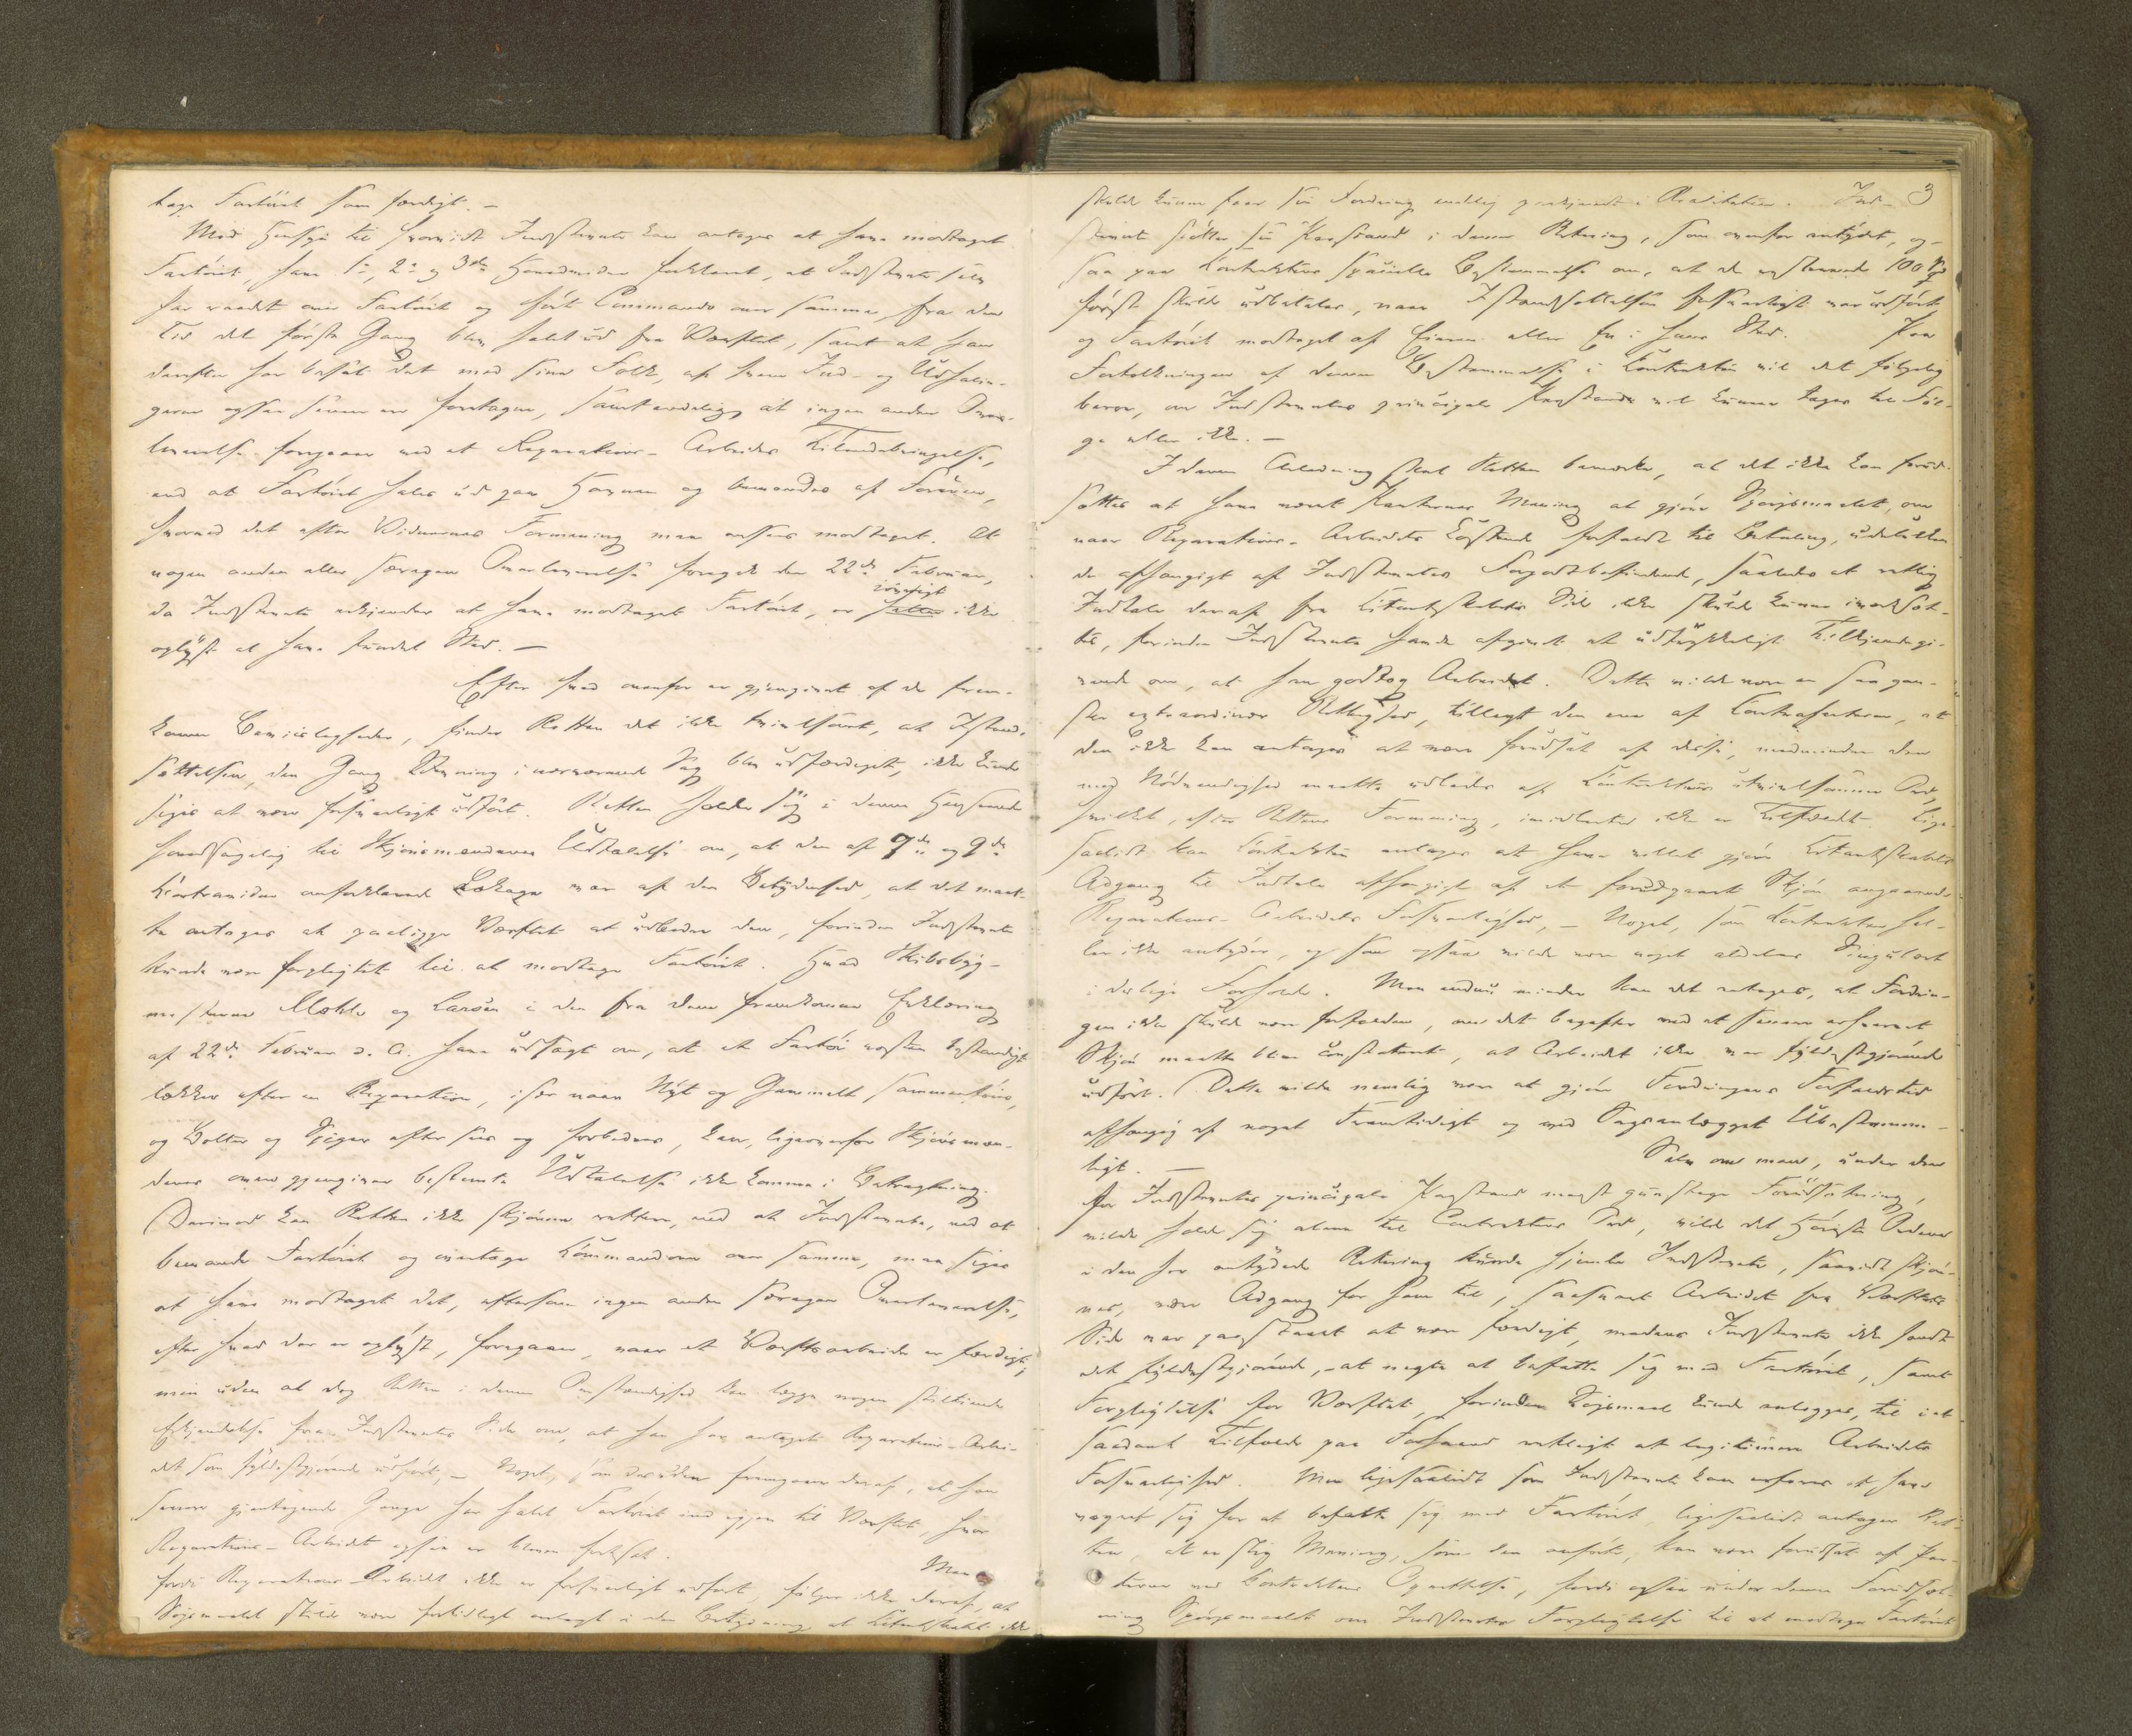 tage Fartöiet som færdigt. –
Med Hensyn til hvorvidt Indstevnte kan antages at have modtaget
Fartöiet, have 1ste, 2de og 3die Hovedvidner forklaret, at Indstevnte selv
har raadet over Fartöiet og ført Commando over samme, fra den
Tid det første Gang blev halet ud fra Værftet, samt at han
derefter har besat det med sine Folk, af hvem Ind- og Udhalin-
gerne ogsaa senere ere foretagne, samt endelig at ingen anden Over-
leverelse foregaaer ved et Reparations-Arbeides Tilendebringelse,
end at Fartöiet hales ud paa Havnen og bemandes af Føreren,
hvorved det efter Vidnernes Formening maa ansees modtaget. At
nogen anden eller særegen Overleverelse foregik den 22de Februar,
da Indstevnte erkjender at have modtaget Fartöiet, er heller ikke
oplyst at have fundet Sted. –
Efter hvad ovenfor er gjengivet af de frem-
komne Beviisligheder, finder Retten det ikke tvivlsomt, at Istand-
sættelsen, den Gang Stevning i nærværende Sag blev udfærdiget, ikke kunde
siges at være forsvarligt udført. Retten holder sig i denne Henseende
hovedsagelig til Skjönsmændenes Udtalelse om, at den af 7de og 9de
Contravidne anforklarede Lækage var af den Betydenhed, at det maat-
te antages at paaligge Værftet at udbedre den, forinden Indstevnte
kunde være forpligtet til at modtage Fartöiet. Hvad Skibsbyg-
mesterne Møhle og Larsen i den fra dem fremkomne Erklæring
af 22de Februar d. A. have udsagt om, at et Fartöi næsten bestandigt
lækker efter en Reparation, især naar Nyt og Gammelt sammenføies,
og Bolter og Spiger efter sees og forbedres, kan, ligeoverfor Skjönsmæn-
denes ovengjengivne bestemte Udtalelse ikke komme i Betragtning.
Derimod kan Retten ikke skjönne rettere, end at Indstevnte, ved at
bemande Fartöiet og overtage Commandoen over samme, maa siges
at have modtaget det, eftersom ingen anden særegen Overleverelse,
efter hvad der er oplyst, foregaaer, naar et Værftsarbeide er færdigt,
men uden at dog Retten i denne Omstændighed kan lægge nogen stiltiende
Erkjendelse fra Indstevntes Side om, at han har antaget Reparations-Arbei-
det som fyldestgjørende udført, – Noget, som desuden fremgaaer deraf, at han
senere gjentagende Gange har halet Fartöiet ind igjen til Værftet, hvor
Reparations-Arbeidet ogsaa er bleven fortsat.
Men
fordi Reparations-Arbeidet ikke er forsvarligt udført, følger ikke deraf, at
Søgsmaalet skulde være fortidligt anlagt i den Betydning, at Citantskabet ikke
3
skulde kunne faae sin Fordring endelig paakjendt i Realiteten. Ind-
stevnte støtter sin Paastand i denne Retning, som ovenfor antydet, og-
saa paa Contraktens specielle Bestemmelse om, at de resterende 100
først skulde udbetales, naar Istandsættelsen forsvarligt var udført
og Fartöiet modtaget af Eieren eller En i hans Sted. Paa
Fortolkningen af denne Bestemmelse i Contrakten vil det følgelig
beroe, om Indstevntes principale Paastand vil kunne tages til Föl-
ge eller ikke. –
I denne Anledning skal Retten bemærke, at det ikke kan forud-
sættes at have været Parternes Mening at gjøre Spørgsmaalet, om
naar Reparations-Arbeidets Kostende forfaldt til Betaling, udelukken-
de afhængigt af Indstevntes Forgodtbefindende, saaledes at rettlig
Indtale deraf fra Citantskabets Side ikke skulde kunne iværksæt-
tes, forinden Indstevnte havde afgivet et udtrykkeligt Tilkjendegi-
vende om, at han godtog Arbeidet. Dette vilde være en saa gan-
ske extraordinær Rettighed, tillagt den ene af Contrahenterne, at
den ikke kan antages at være forudsat af disse, medmindre den
med Nödvendighed maatte udledes af Contraktens utvivlsomme Ord,
hvilket, efter Rettens Formening, imidlertid ikke er Tilfældet. Lige-
saalidt kan Contrakten antages at have villet gjøre Citantskabets
Adgang til Indtale afhængigt af et forudgaaet Skjön angaaende
Reparations-Arbeidets Forsvarlighed, – Noget, som Contrakten hel-
ler ikke antyder, og som ogsaa vilde være noget aldeles Singulært
i deslige Forholde. Men endnu mindre kan det antages, at Fordrin-
gen ikke skulde være forfalden, om det bagefter ved et senere erhvervet
Skjön maatte blive constateret, at Arbeidet ikke var fyldestgjørende
udført. Dette vilde nemlig være at gjøre Fordringens Forfaldstid
afhængig af noget Fremtidigt og ved Sagsanlægget Ubestemme-
ligt. –
Selv om man, under den
for Indstevntes principale Paastand meest gunstige Forudsætning,
vilde holde sig alene til Contraktens Ord, vilde det Høieste Ordene
i den her antydede Retning kunde hjemle Indstevnte, saavidt skjön-
nes, være Adgang for ham til, saasnart Arbeidet fra Værftets
Side var paastaaet at være færdigt, medens Indstevnte ikke fandt
det fyldestgjørende, – at negte at befatte sig med Fartöiet, samt
Forpligtelse for Værftet, forinden Søgsmaal kunde anlægges, til i et
saadant Tilfælde paa Forhaand retsligt at legitimere Arbeidets
Forsvarlighed. Men ligesaalidt som Indstevnte kan erfares at have
vægret sig for at befatte sig med Fartöiet, ligesaalidt antager Ret-
ten, at en slig Mening, som den anførte, kan være forudsat af Par-
terne ved Contraktens Oprettelse, fordi ogsaa under denne Forudsæt-
ning Spörgsmaalet om Indstevntes Forpligtelse til at modtage Fartöiet